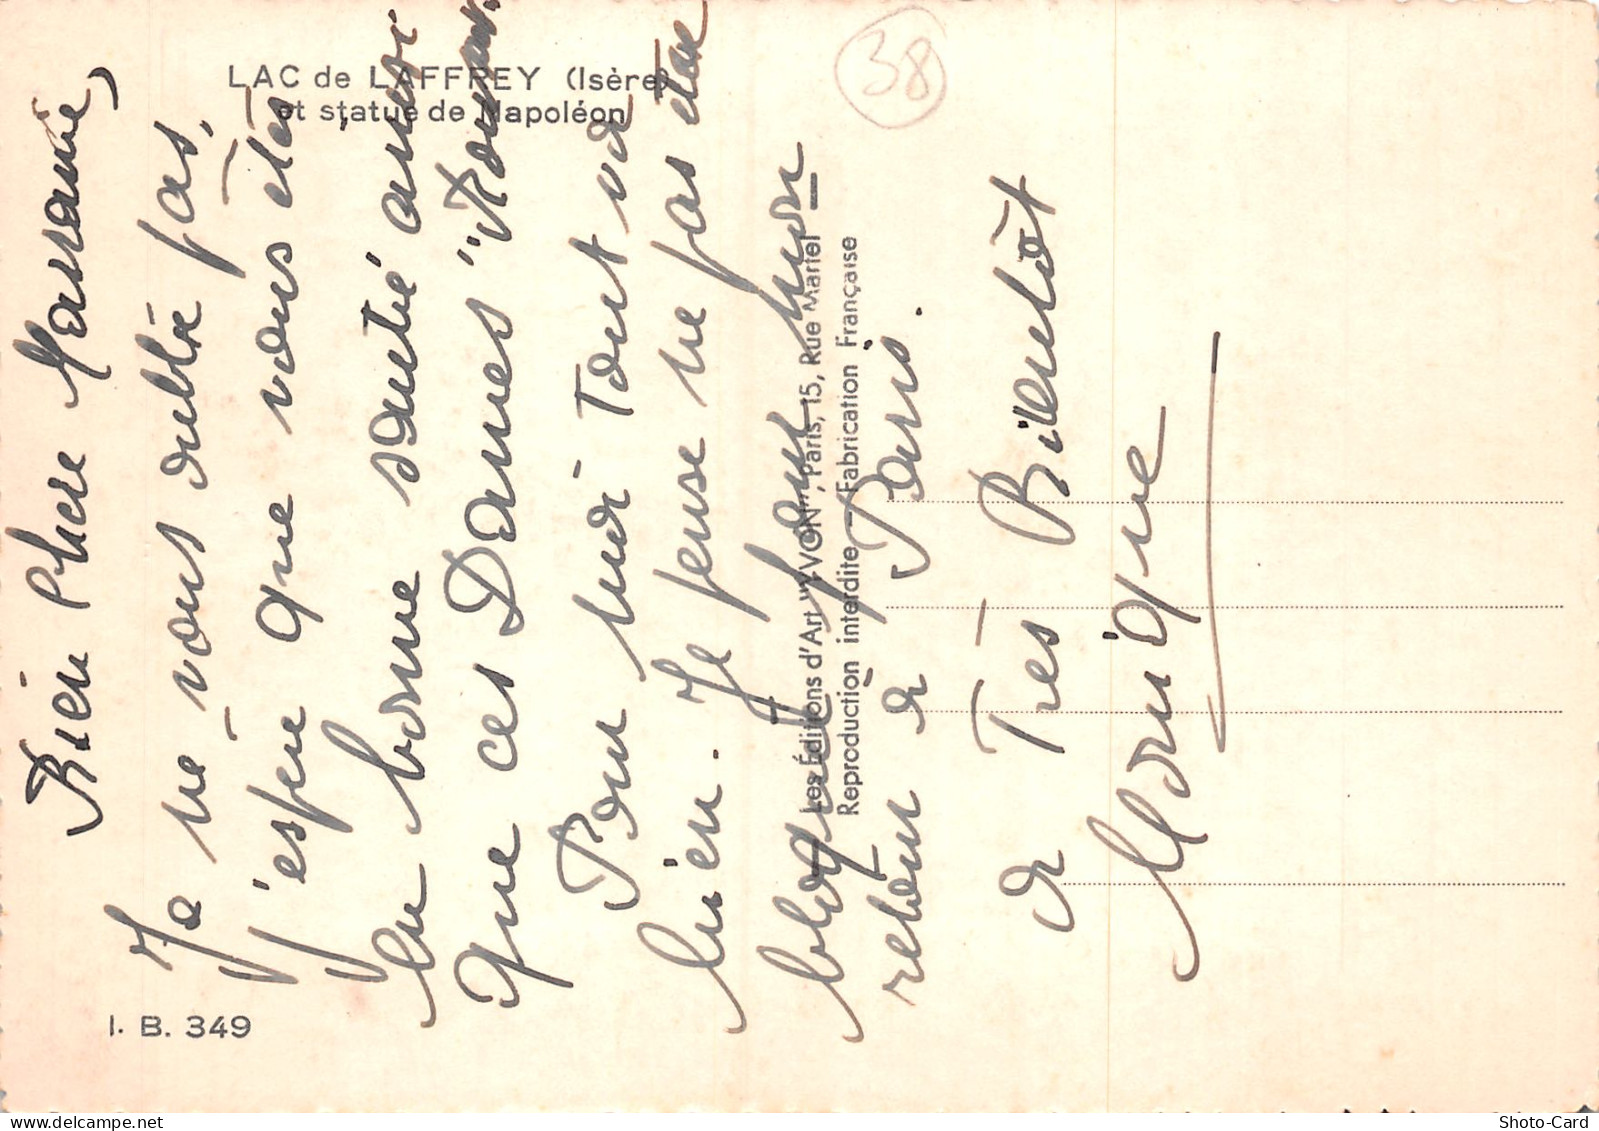 LAC de LAFFREY (Isère)
et statue de Napoléon
38
Bien chère
Je ne vous oublie pas,
J'espère que vous êtes
en bonne santé ainsi
que ces Dames
Pour moi tout va
bien. Je pense ne pas être
bloquée pour mon
retour à Paris.
à Très Bientôt
Monique
Les Éditions d'Art "YVON", Paris, 15, Rue Martel
Reproduction interdite - Fabrication Française
I. B. 349
Shoto-Card